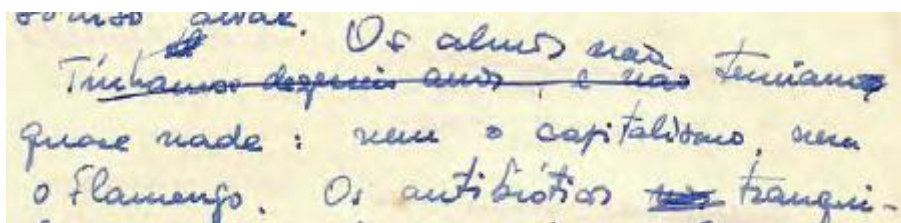 Os alunos não
Tínhamos dezesseis anos, e não temiam
quase nada: nem o capitalismo, nem
o Flamengo. Os antibióticos tranqui-